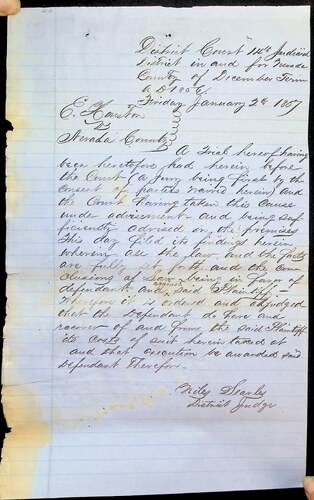 District Court 14th Judicial
District in and for Nevada
County of December Term
A D 1856
Friday January 2d 1857
E. Harston
vs
Nevada County
A trial hereof having
been heretofore had herein before
the Court (a jury being first by the
consent of parties waived herein) and
the Court having taken this Cause
under advisement and being suf
ficiently advised in the premises
this day filed its findings herein
wherein all the law and the facts
are fully set forth and the con
clusions of Law being in favor of
defendant and against said Plaintiff
Wherefore it is ordered and adjudged
that the Defendant do have and
recover of and from the said Plaintiff
its costs of suit herein taxed at
and that execution be awarded said
Defendant therefor.
Niles Searls
District Judge